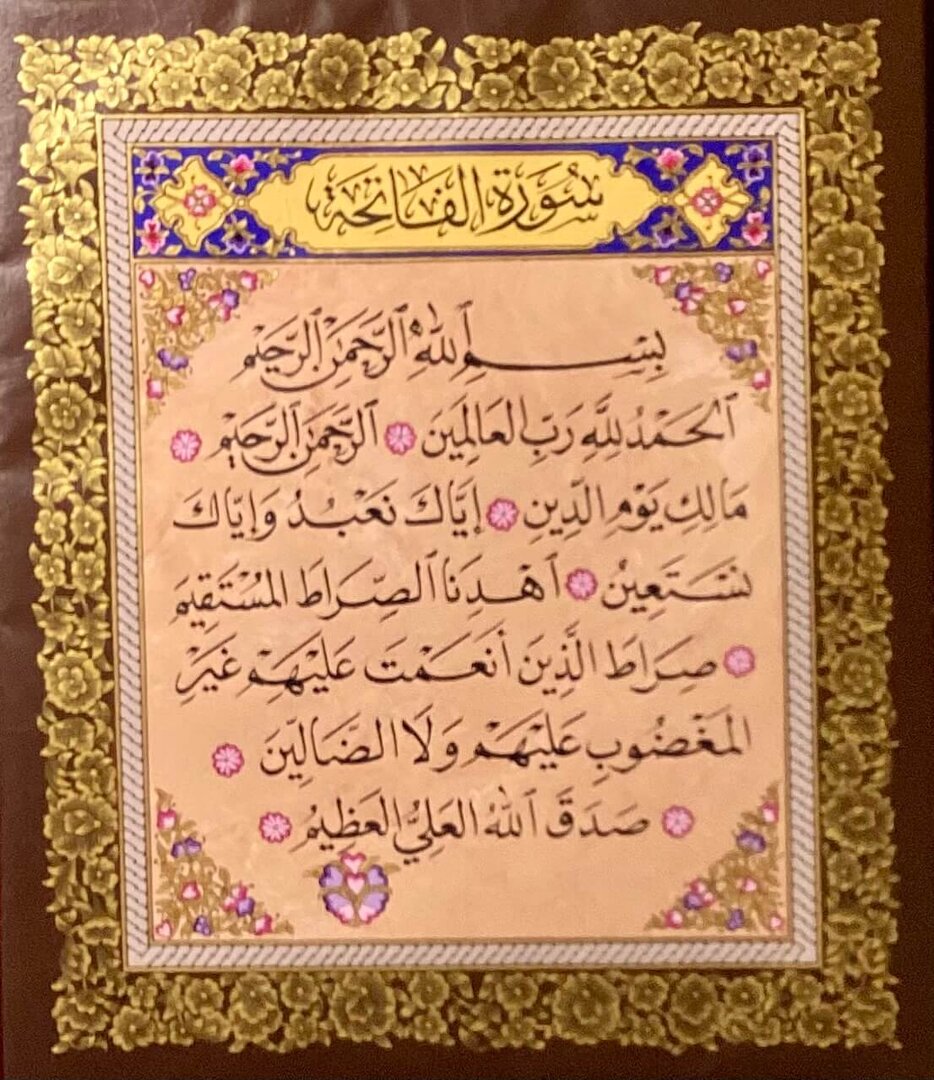 سُورَة الفَاتِحَة
بِسْمِ ٱللَّهِ ٱلرَّحْمَنِ ٱلرَّحِيمِ
ٱلحَمْدُ لِلَّهِ رَبِّ العَالَمِينَ ٱلرَّحْمَنِ ٱلرَّحِيمِ
مَالِكِ يَوْمِ الدِّينِ إِيَّاكَ نَعْبُدُ وَإِيَّاكَ
نَسْتَعِينُ ٱهْدِنَا ٱلصِّرَاطَ المُسْتَقِيمَ
صِرَاطَ الَّذِينَ أَنعَمْتَ عَلَيْهِمْ غَيْرِ
المَغْضُوبِ عَلَيْهِمْ وَلَا الضَّالِّينَ
صَدَقَ ٱللَّهُ العَلِيُّ العَظِيمُ